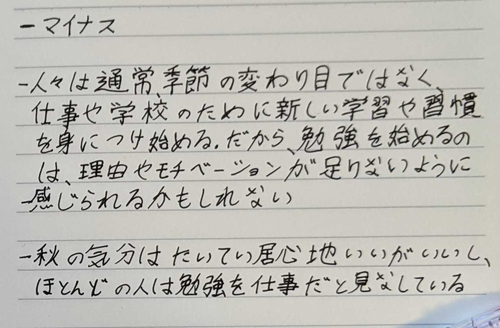 －マイナス
－人々は通常、季節の変わり目ではなく、
仕事や学校のために新しい学習や習慣
を身につけ始める。だから、勉強を始めるの
は、理由やモチベーションが足りないように
感じられるかもしれない
－秋の気分はたいてい居心地いいがいいし、
ほとんどの人は勉強を仕事だと見なしている